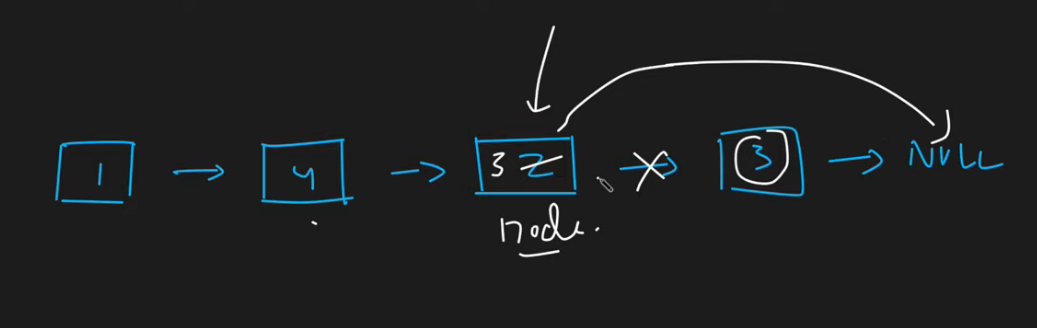 1 → 4 → 3 2 → 3 → NULL
node.